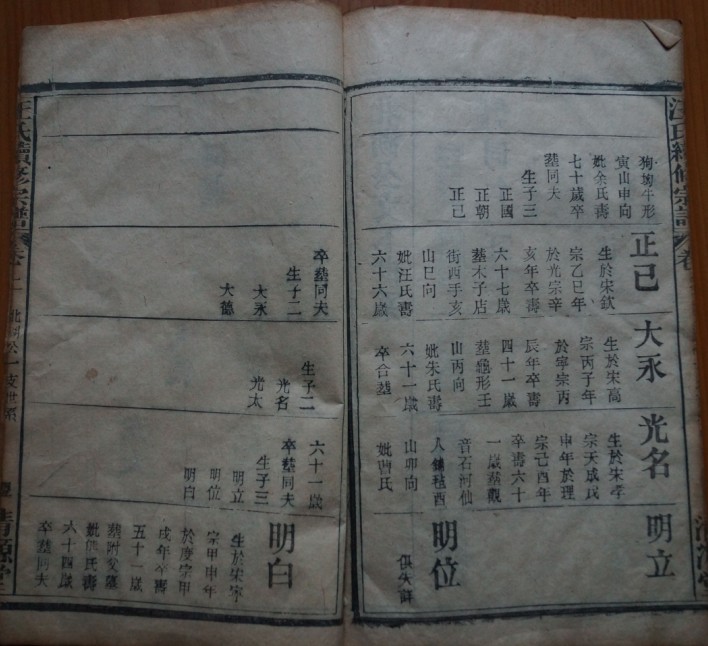 汪氏續修宗譜
卷
狗塲牛形
寅山申向
妣余氏壽
七十歲卒
塟同夫
生子三
正國
正朝
正己
正己
生於宋欽
宗乙巳年
於光宗辛
亥年卒壽
六十七歲
塟木子店
街西手亥
山巳向
妣汪氏壽
六十六歲
大永
生於宋高
宗丙子年
於寧宗丙
辰年卒壽
四十一歲
塟龜形壬
山丙向
妣朱氏壽
六十一歲
卒合塟
光名
生於宋孝
宗天成戊
申年於理
宗己酉年
卒壽六十
一歲塟觀
音石河仙
人舖毡酉
山卯向
妣曹氏
明立
明位
俱失詳
清源堂
卒塟同夫
生子二
大永
大德
生子二
光名
光太
六十一歲
卒塟同夫
生子三
明立
明位
明白
明白
生於宋寧
宗甲申年
於度宗甲
戌年卒壽
五十一歲
塟附父墓
妣熊氏壽
六十四歲
卒塟同夫
汪氏續修宗譜
卷十二
支世系
清源堂